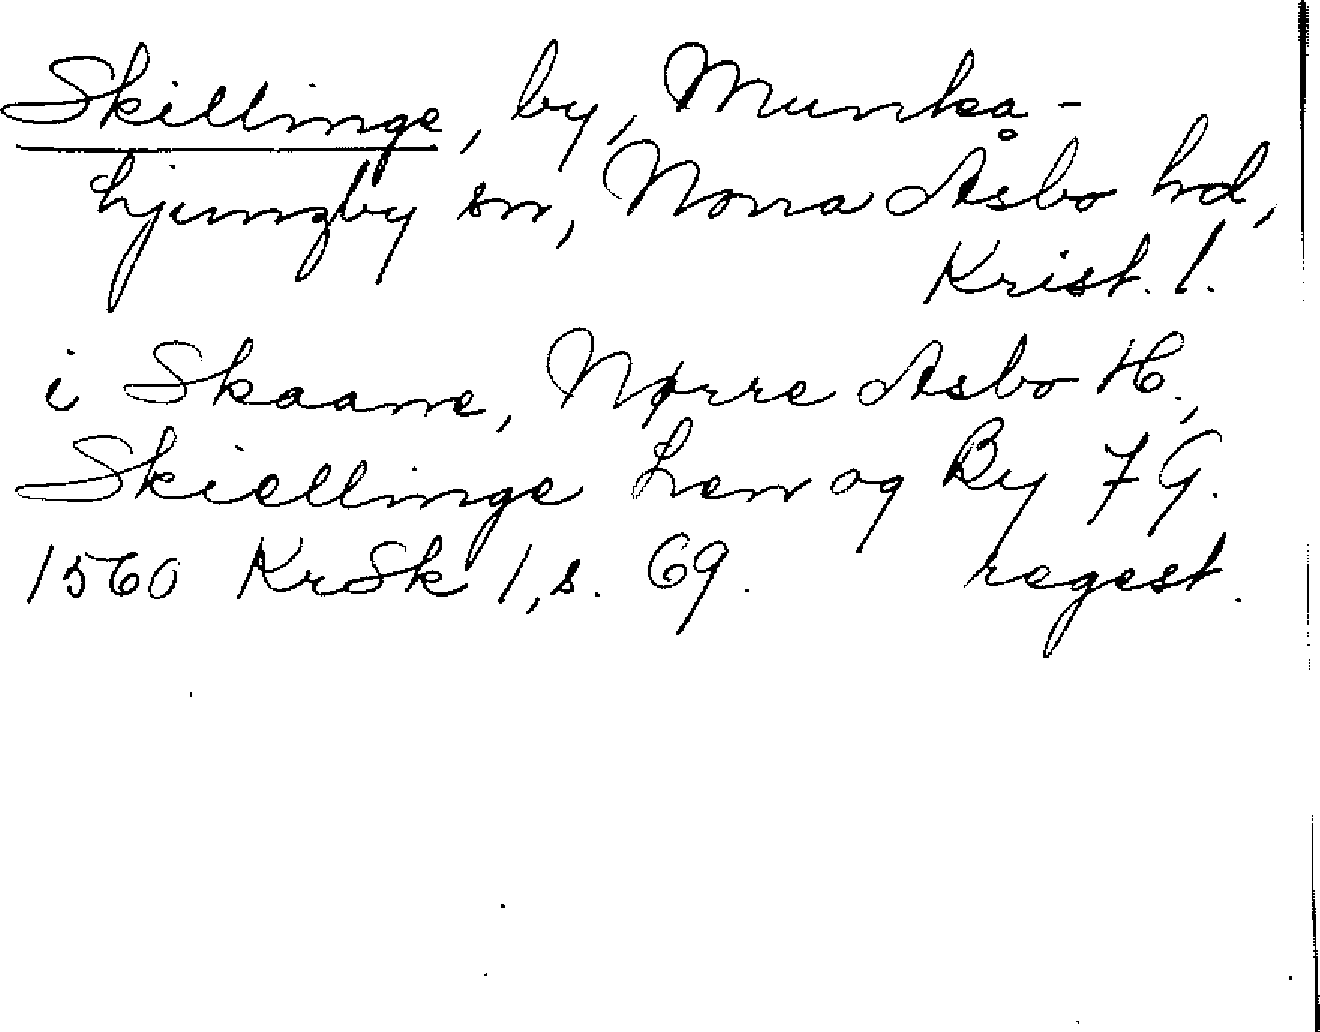 Skillinge, by, Munka-
ljungby sn, Norra Åsbo hd,
Krist. l.
i Skaane, Nørre Asbo H.,
Skiellinge Len og By 7 G.
1560 KrSk 1, s. 69. regest.